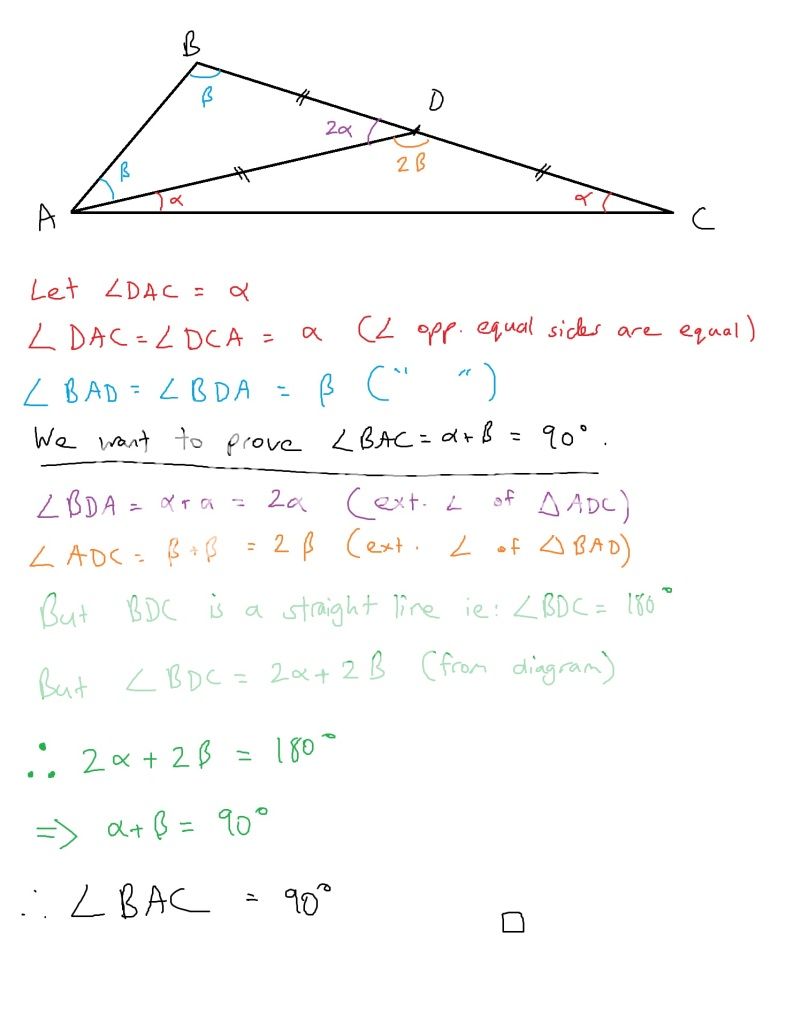 B
D
β
2α
2β
β
α
α
A
C
Let ∠DAC = α
∠DAC = ∠DCA = α (∠ opp. equal sides are equal)
∠BAD = ∠BDA = β (" ")
We want to prove ∠BAC = α+β = 90°.
∠BDA = α+α = 2α (ext. ∠ of △ADC)
∠ADC = β+β = 2β (ext. ∠ of △BAD)
But BDC is a straight line ie: ∠BDC = 180°
But ∠BDC = 2α+2β (from diagram)
∴ 2α+2β = 180°
=> α+β = 90°
∴ ∠BAC = 90°
□